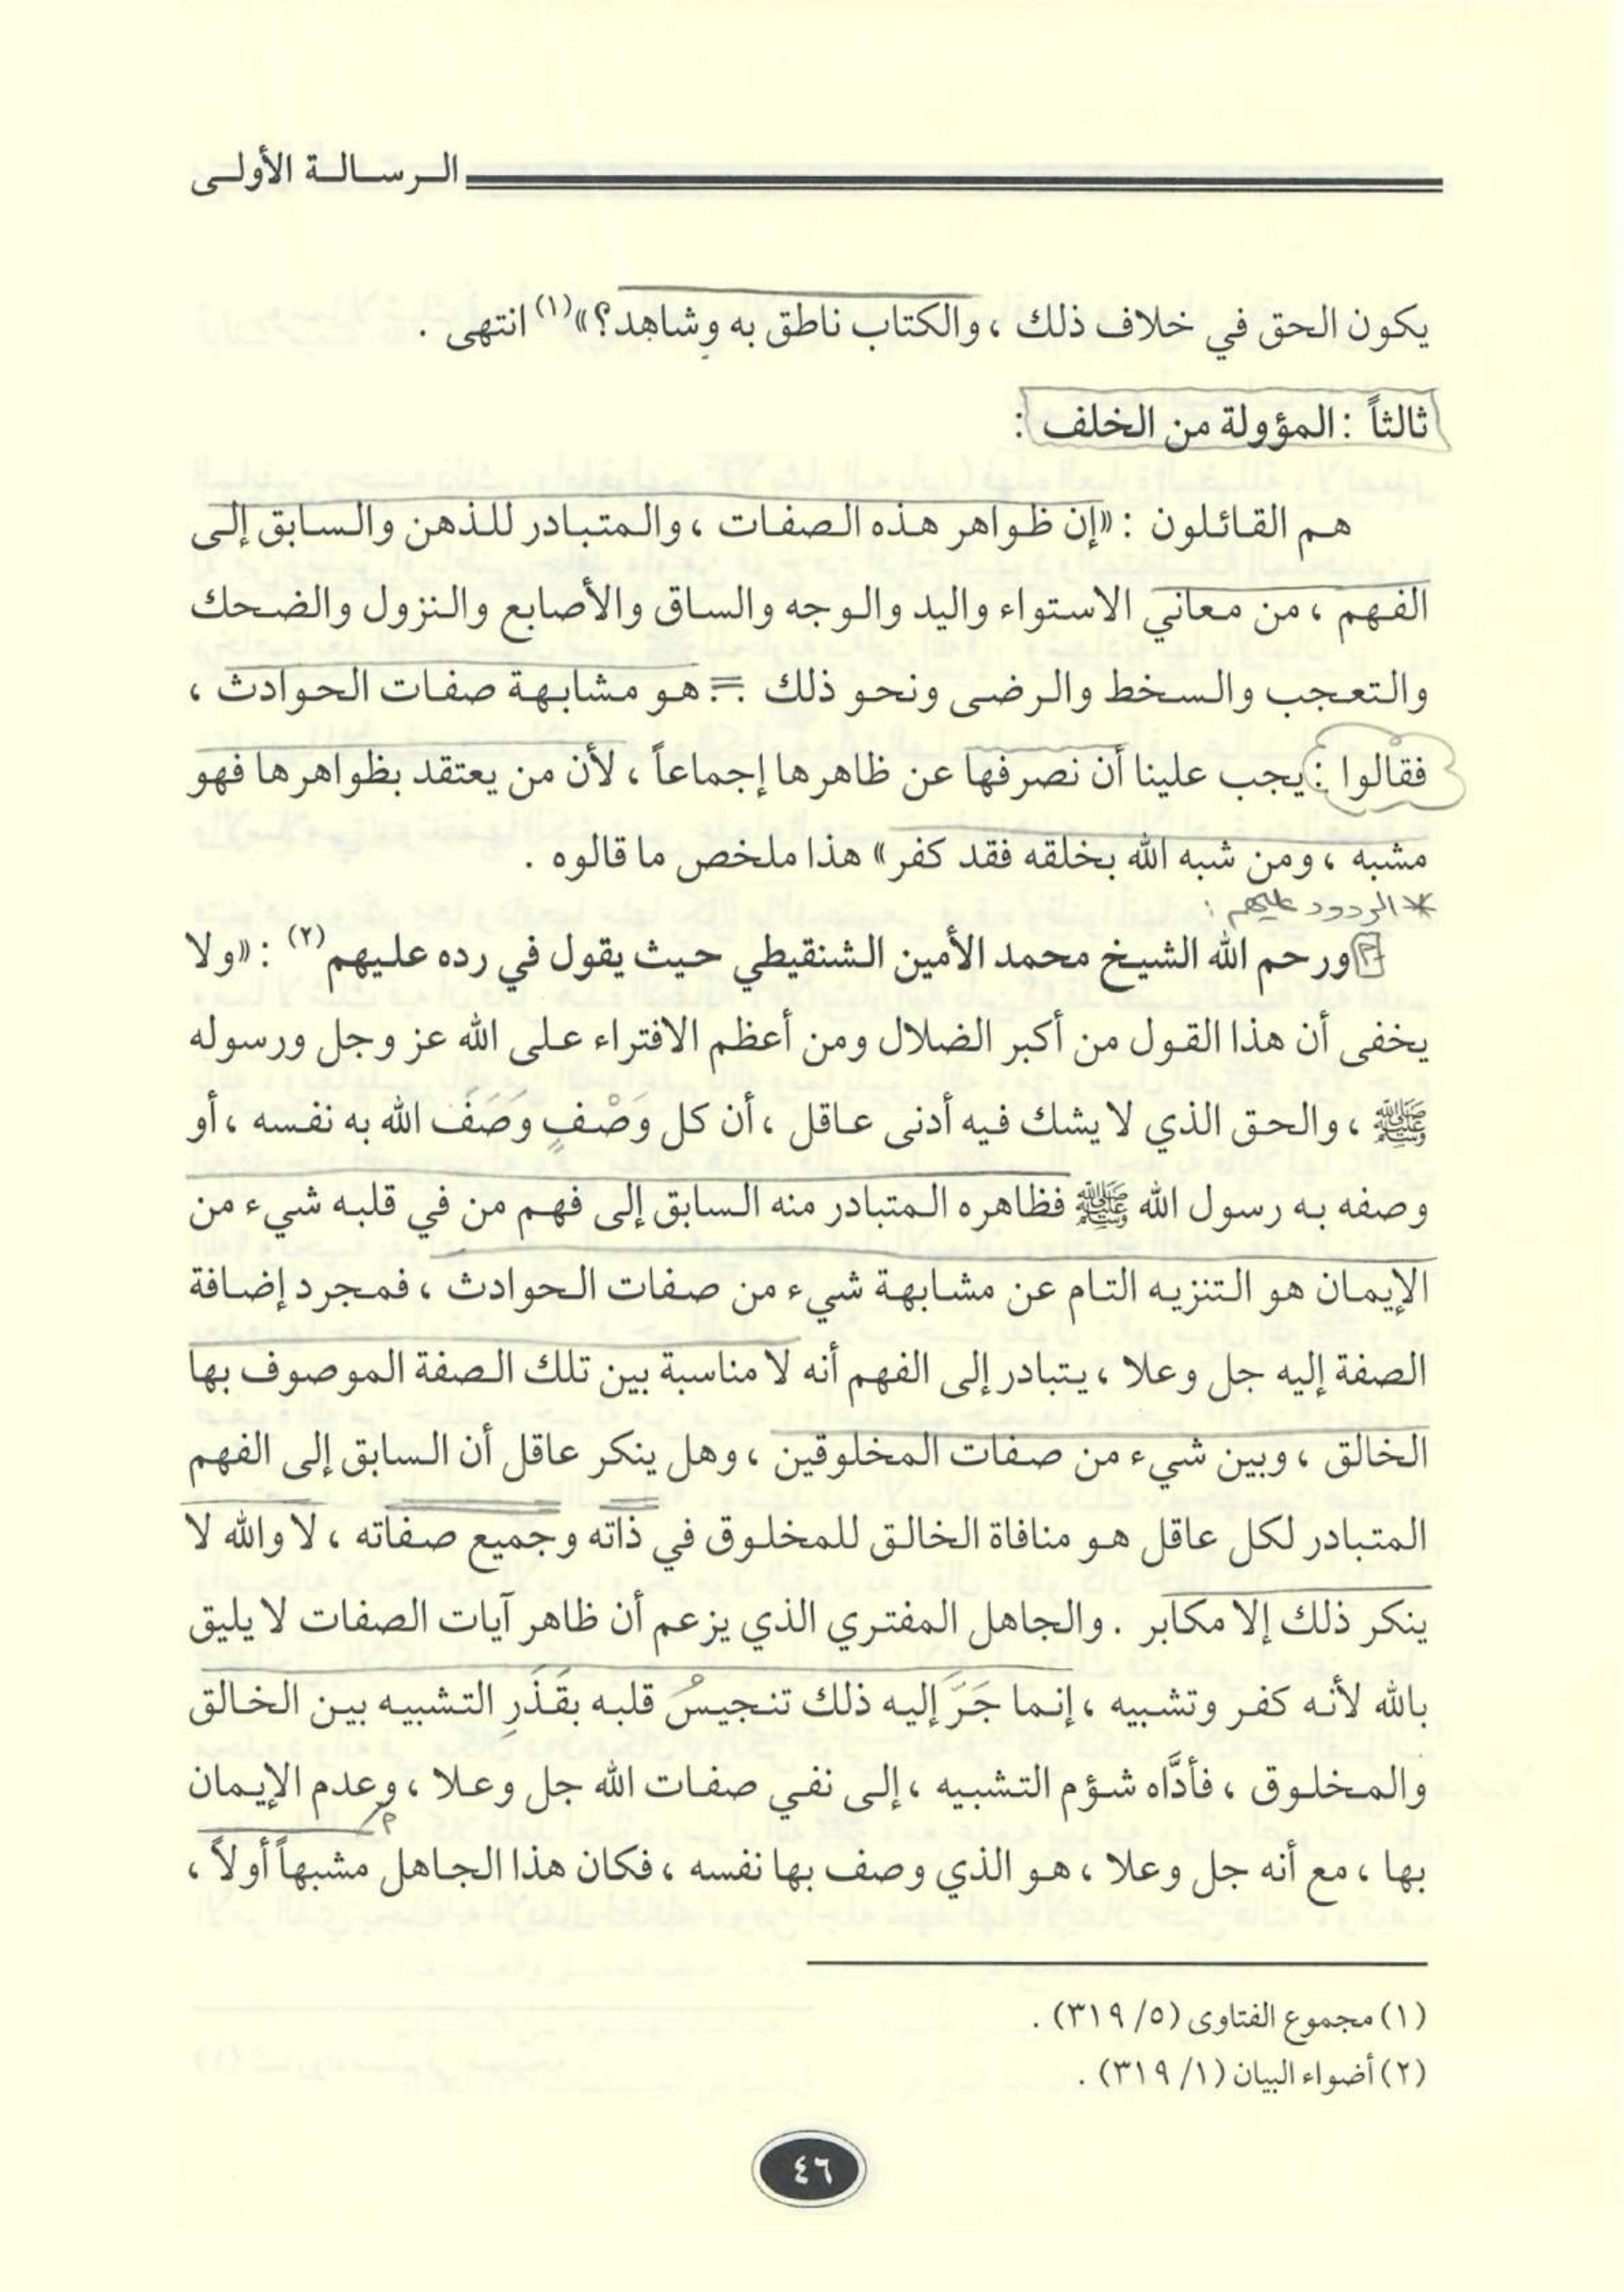 الرسالة الأولى
يكون الحق في خلاف ذلك ، والكتاب ناطق به وشاهد؟»(١) انتهى .
ثالثاً : المؤولة من الخلف :
هم القائلون : «إن ظواهر هذه الصفات ، والمتبادر للذهن والسابق إلى
الفهم ، من معاني الاستواء واليد والوجه والساق والأصابع والنزول والضحك
والتعجب والسخط والرضى ونحو ذلك .. هو مشابهة صفات الحوادث ،
فقالوا : يجب علينا أن نصرفها عن ظاهرها إجماعاً ، لأن من يعتقد بظواهرها فهو
مشبه ، ومن شبه الله بخلقه فقد كفر» هذا ملخص ما قالوه .
* الردود عليهم :
ورحم الله الشيخ محمد الأمين الشنقيطي حيث يقول في رده عليهم(٢) : «ولا
يخفى أن هذا القول من أكبر الضلال ومن أعظم الافتراء على الله عز وجل ورسوله
ﷺ ، والحق الذي لا يشك فيه أدنى عاقل ، أن كل وَصْفٍ وَصَفَ الله به نفسه ، أو
وصفه به رسول الله ﷺ فظاهره المتبادر منه السابق إلى فهم من في قلبه شيء من
الإيمان هو التنزيه التام عن مشابهة شيء من صفات الحوادث ، فمجرد إضافة
الصفة إليه جل وعلا ، يتبادر إلى الفهم أنه لا مناسبة بين تلك الصفة الموصوف بها
الخالق ، وبين شيء من صفات المخلوقين ، وهل ينكر عاقل أن السابق إلى الفهم
المتبادر لكل عاقل هو منافاة الخالق للمخلوق في ذاته وجميع صفاته ، لا والله لا
ينكر ذلك إلا مكابر . والجاهل المفتري الذي يزعم أن ظاهر آيات الصفات لا يليق
بالله لأنه كفر وتشبيه ، إنما جَرَّ إليه ذلك تنجيسُ قلبه بقَذَرِ التشبيه بين الخالق
والمخلوق ، فأدَّاه شؤم التشبيه ، إلى نفي صفات الله جل وعلا ، وعدم الإيمان
بها ، مع أنه جل وعلا ، هو الذي وصف بها نفسه ، فكان هذا الجاهل مشبهاً أولاً ،
(١) مجموع الفتاوى (٥/ ٣١٩) .
(٢) أضواء البيان (١/ ٣١٩) .
٤٦